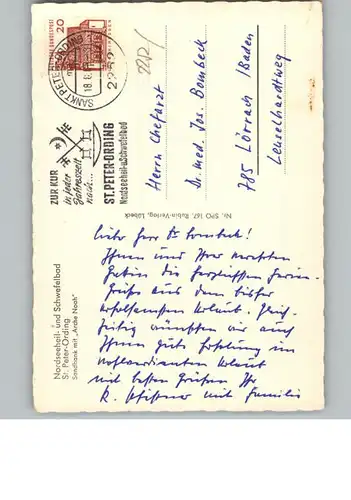 Nordseeheil- und Schwefelbad
St. Peter-Ording
Sandbank mit „Arche Noah"
ZUR KUR
in jeder
Jahreszeit
nach...
ST. PETER-ORDING
Nordseeheil-u.Schwefelbad
SANKT PETER-ORDING
2252
18.8.
20
DEUTSCHE BUNDESPOST
Herrn Chefarzt
Dr. med. Jos. Bombeck
785 Lörrach /Baden
Leuselhardtweg
Nr. SPO 167 Rubin-Verlag, Lübeck
Liebe Herr Dr. Bombeck!
Ihnen und Ihrer werten
die herzlichsten Ferien-
Grüße aus dem bisher
Urlaub. Gleich-
zeitig wünschen wir auch
Ihnen gute Erholung im
wohlverdienten Urlaub
mit besten Grüßen Ihr
mit Familie